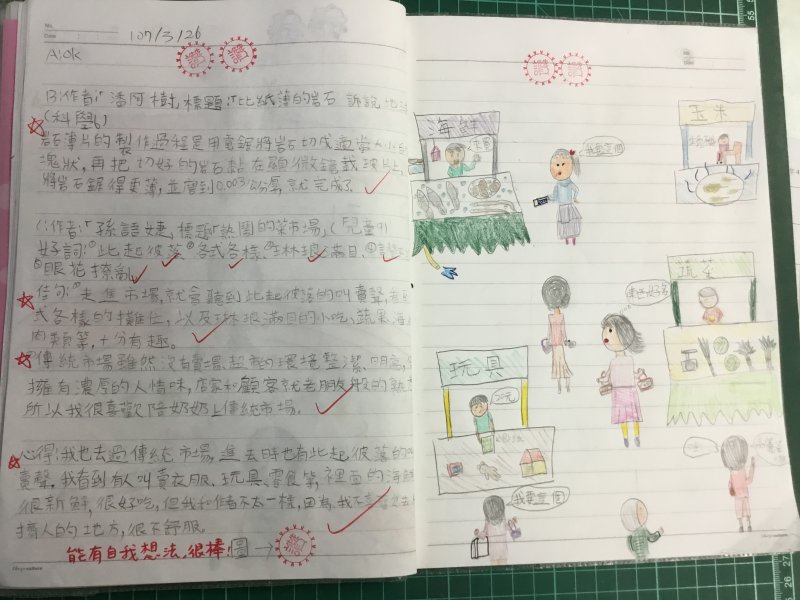 No.
Date
107/3/26
A:ok
B:作者:「潘阿樹,標題:「比紙薄的岩石 訴說地
(科學6)
岩石薄片的製作過程是用電鋸將岩石切成適當大小的
塊狀,再把切好的岩石黏在顯微鏡載玻片
將岩石鋸得更薄,並磨到0.003公分厚,就完成了
C:作者:「孫語婕,標題「熱鬧的菜市場,(兒童
好詞:①此起彼落②各式各樣③琳琅滿目④
⑤眼花撩亂
佳句:①走進市場,就會聽到此起彼落的叫賣聲,看
式各樣的攤位,以及琳琅滿目的小吃、蔬果、海
肉類等,十分有趣。
傳統市場雖然沒有賣場、超市的環境整潔、明亮,
擁有濃厚的人情味,店家和顧客就老朋友般的熱
所以我很喜歡陪奶奶上傳統市場。
心得:我也去過傳統市場,進去時也有此起彼落的叫
賣聲,我看到有人叫賣衣服、玩具、零食等,裡面的海鮮
很新鮮,很好吃,但我和作者不太一樣,因為,我不喜歡去
擠人的地方,很不舒服。
能有自我想法,很棒!圖→
海鮮
我要這個
玉米
蔬菜
玩具
20元
我要這個